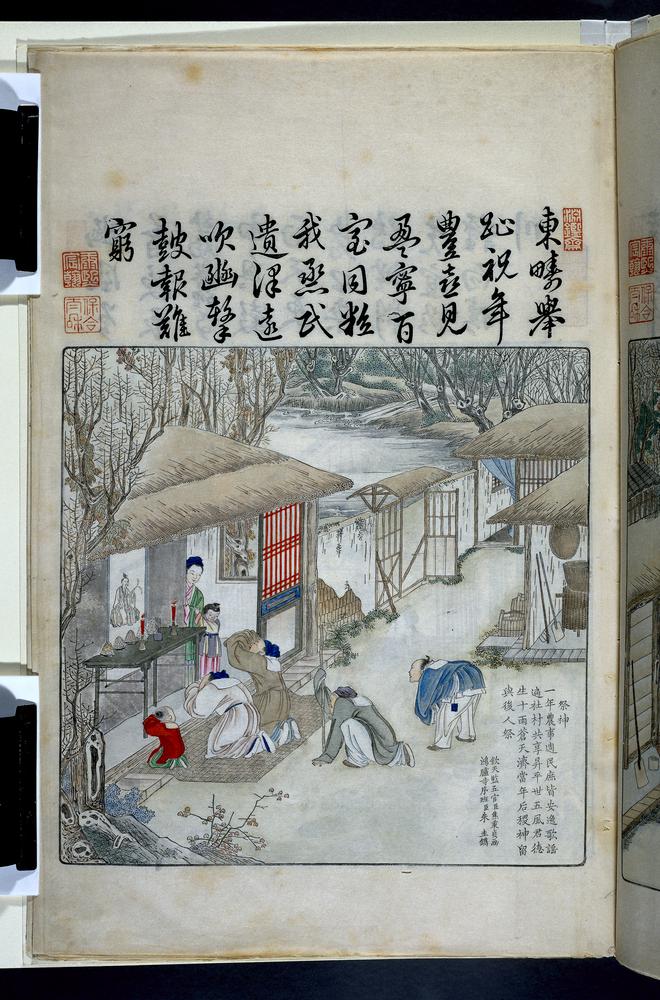 淵鑒齋
東疇舉
趾祝年
豐喜見
盈寧百
室同粒
我烝民
遺澤遠
吹豳擊
鼓報難
窮
康熙宸翰
保合太和
祭神
一年農事週民庶皆安逸歌謠
遍社村共享昇平世五風君德
生十雨蒼天濟當年后稷神留
與後人祭
欽天監五官臣焦秉貞畫
鴻臚寺序班臣朱圭鐫